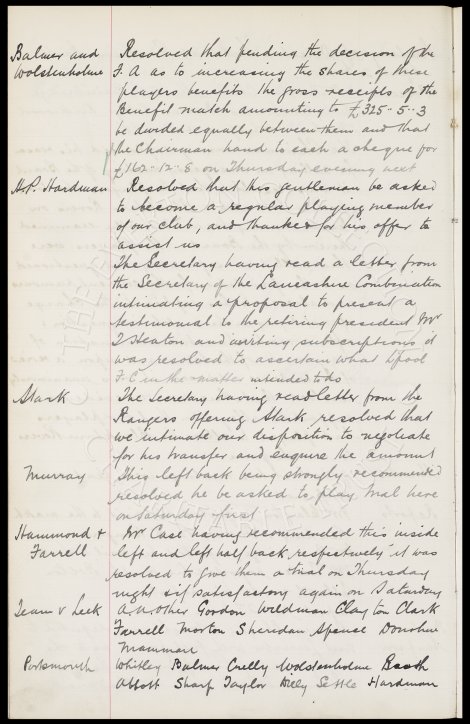 Balmer and Resolved that pending the decision of the
Wolstenholme F. A as to increasing the shares of these
players benefits the gross receipts of the
Benefit match amounting to £325-5-3
be divided equally between them and that
the Chairman hand to each a cheque for
£162-12-8 on Thursday evening next
H.P. Hardman Resolved that this gentleman be asked
to become a regular playing member
of our club, and thanked for his offer to
assist us
The Secretary having read a letter from
the Secretary of the Lancashire Combination
intimating a proposal to present a
testimonial to the retiring president Mr
T Heaton and inviting subscriptions it
was resolved to ascertain what Lpool
F.C in the matter intended to do
Stark The Secretary having read letter from the
Rangers offering Stark resolved that
we intimate our disposition to negotiate
for his transfer and enquire the amount
Murray This left back being strongly recommended
resolved he be asked to play trial here
on Saturday first
Hammond & Mr Case having recommended this inside
Farrell left and left half back respectively it was
resolved to give them a trial on Thursday
night & if satisfactory again on Saturday
Team v Leek A.N.Other Gordon Wildman Clayton Clark
Farrell Morton Sheridan Spence Donohue
Portsmouth Whitley Balmer Crelly Wolstenholme Booth
Abbott Sharp Taylor Settle Hardman